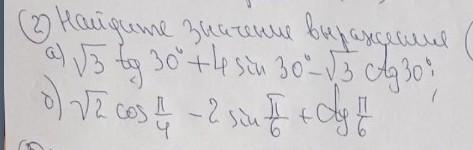 (2) Найдите значение выражения (
а) √3 tg 30° + 4 sin 30° - √3 ctg 30°;
б) √2 cos π/4 - 2 sin π/6 + ctg π/6